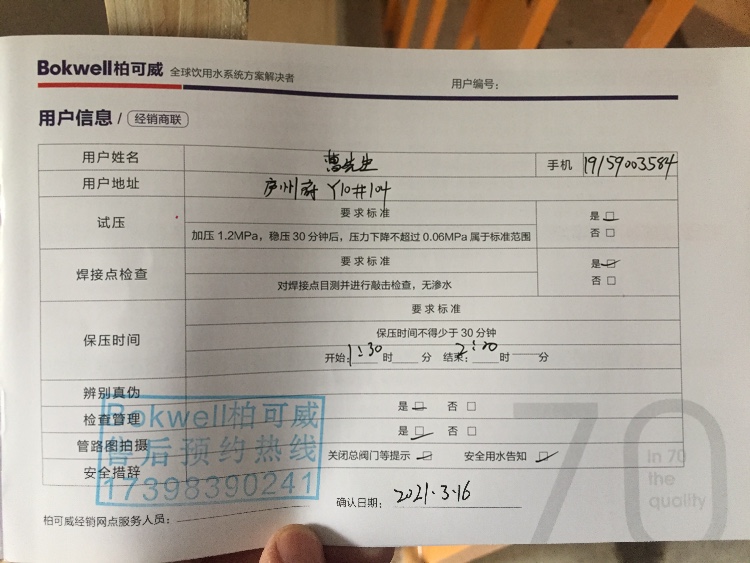 Bokwell柏可威 全球饮用水系统方案解决者
用户编号：
用户信息 / 经销商联
用户姓名 曹先生 手机 19159003584
用户地址 庐州府 Y10#104
试压 要求标准 是
加压1.2MPa，稳压30分钟后，压力下降不超过0.06MPa属于标准范围 否
焊接点检查 要求标准 是
对焊接点目测并进行敲击检查，无渗水 否
保压时间 要求标准
保压时间不得少于30分钟
开始：1:30 时 分 结束：2:00 时 分
辨别真伪 是 否
检查管理 是 否
管路图拍摄 关闭总阀门等提示 安全用水告知
安全措辞
Bokwell柏可威
售后预约热线
17398390241
确认日期：2021.3.16
柏可威经销网点服务人员：
70
In 70
the
quality